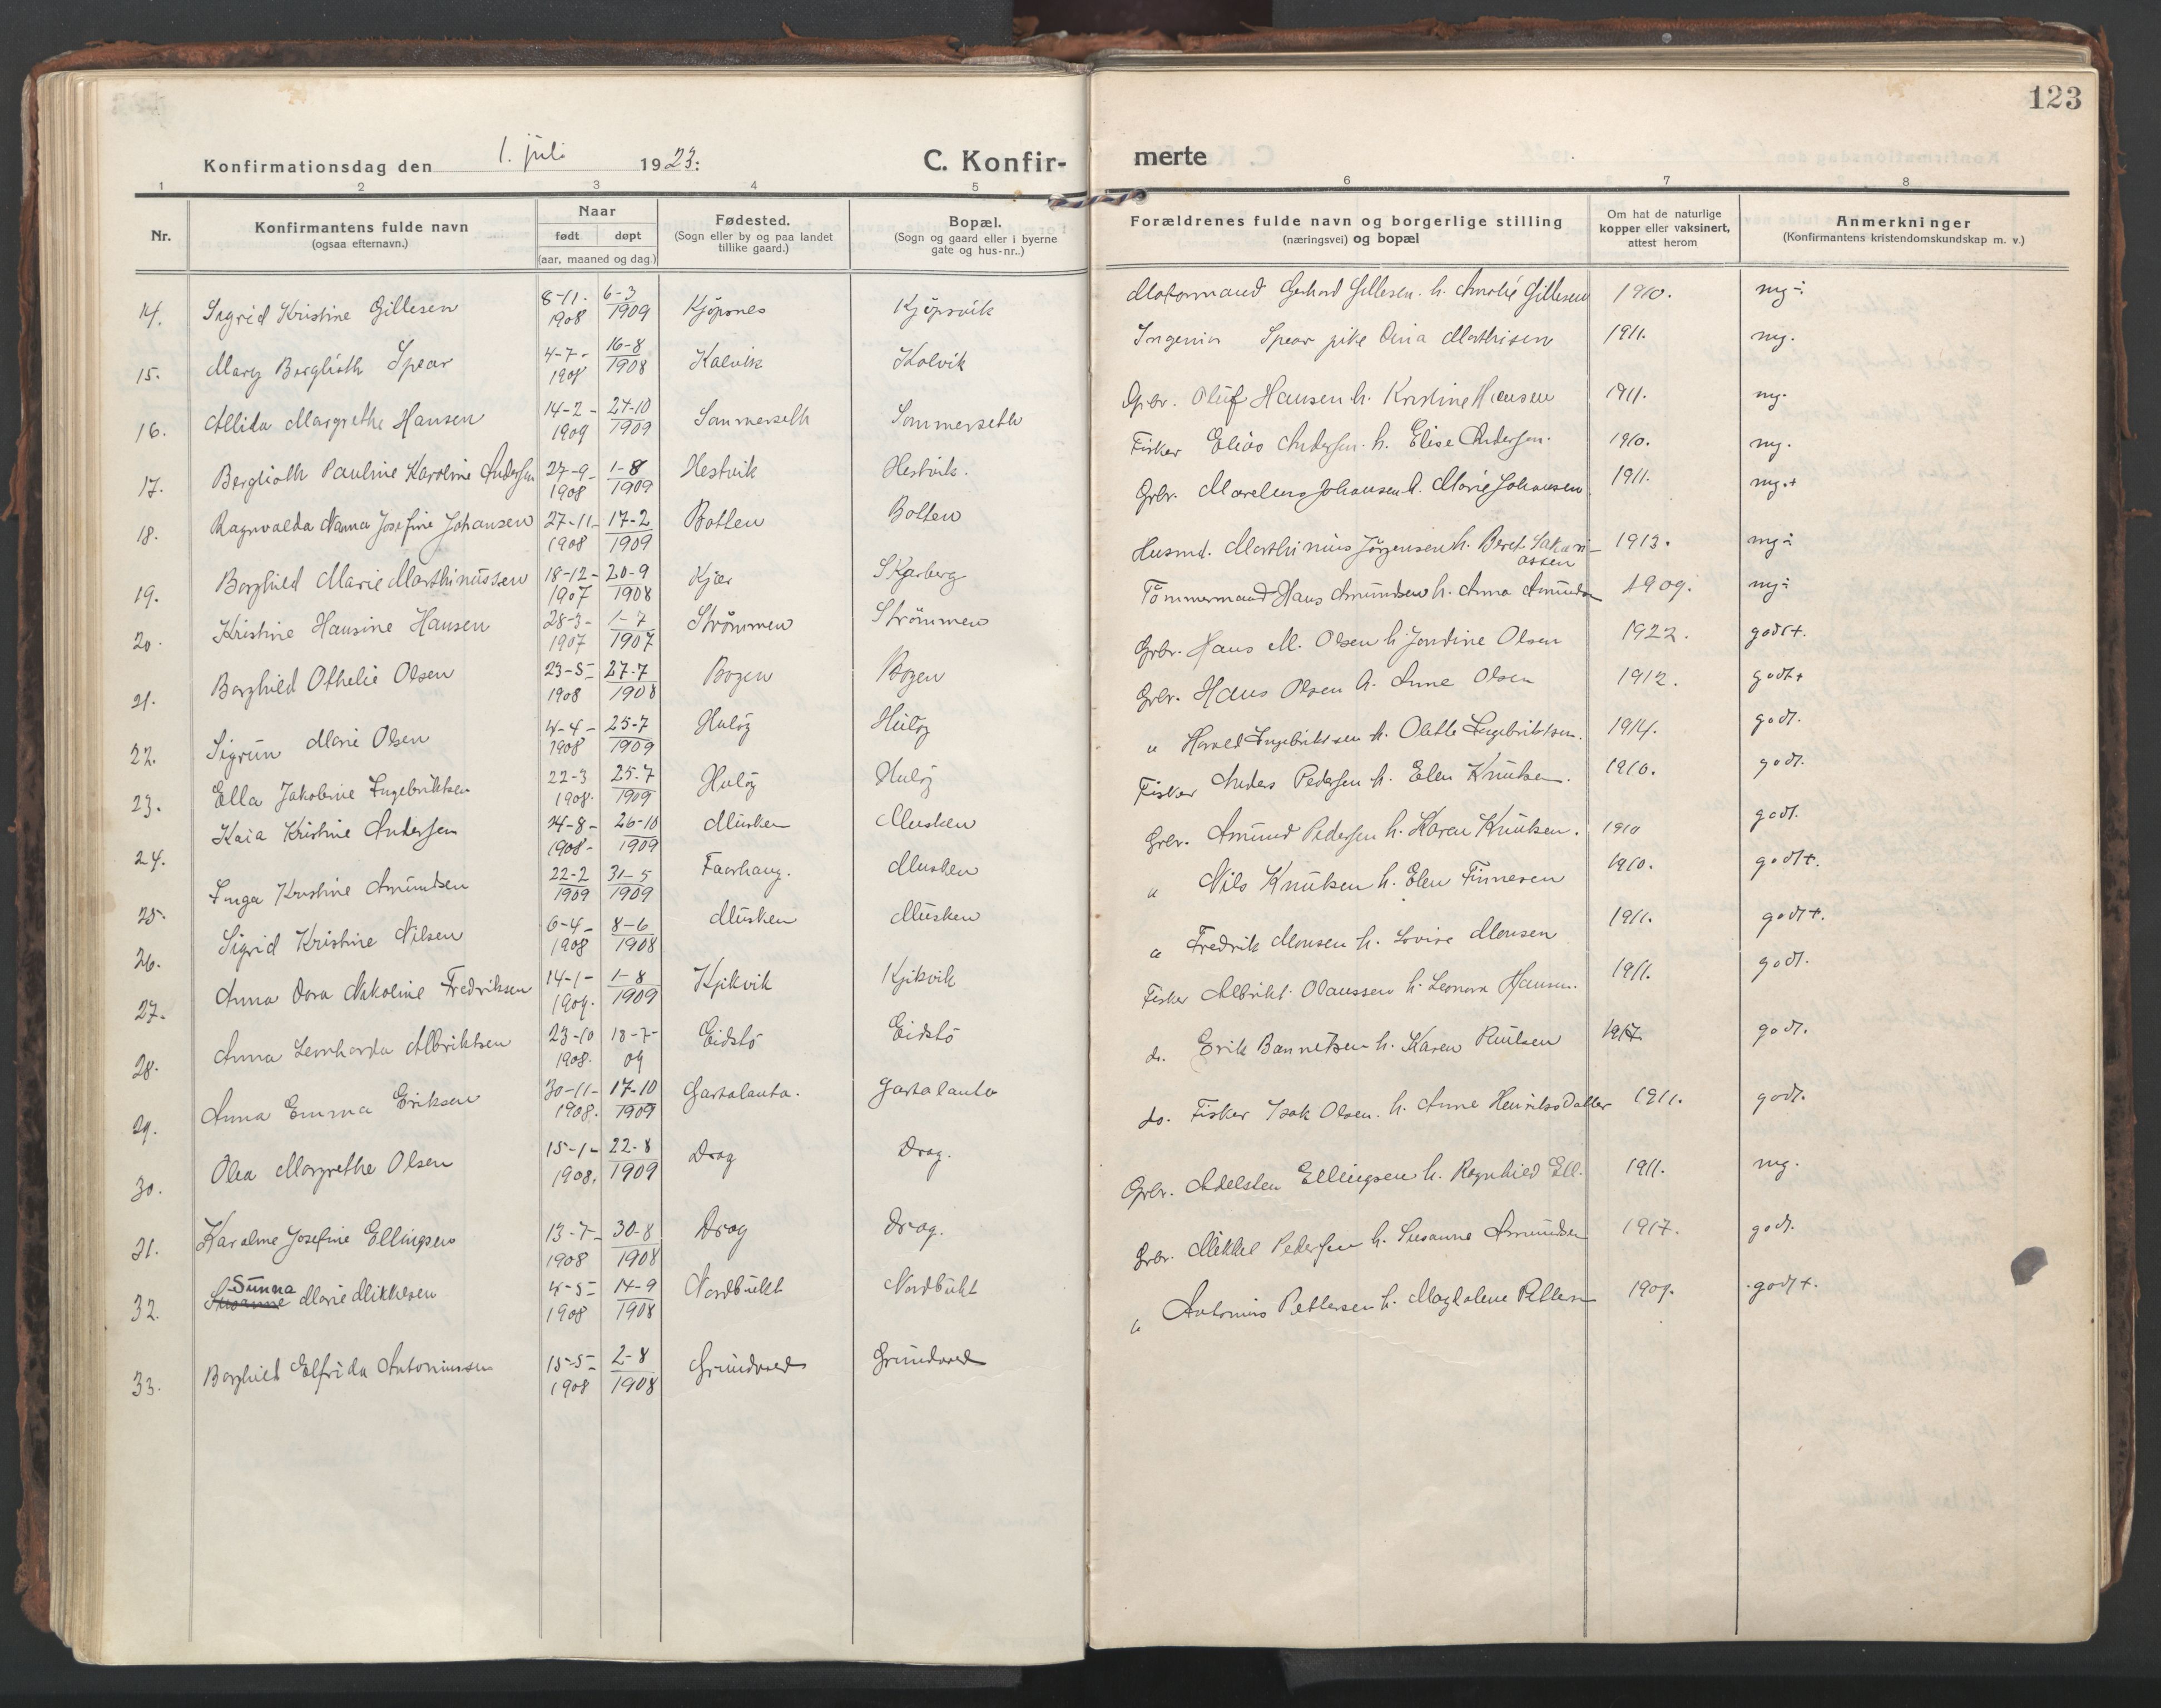 123
Konfirmationsdag den 1. juli 1923: C. Konfir- merte
1 2 3 4 5 6 7 8
Nr. Konfirmantens fulde navn (ogsaa efternavn.) Naar født døpt (aar, maaned og dag.) Fødested. (Sogn eller by og paa landet tillike gaard.) Bopæl. (Sogn og gaard eller i byerne gate og hus-nr..) Forældrenes fulde navn og borgerlige stilling (næringsvei) og bopæl Om hat de naturlige kopper eller vaksinert, attest herom Anmerkninger (Konfirmantens kristendomskundskap m. v.)
14. Sigrid Kristine Gillesen 8-11. 1908 6-3 1909 Kjøpsnes Kjøpsvik Motormand Gerhard Gillesen h. Amalie Gillesen 1910. mg÷
15. Mary Bergliøth Spear 4-7- 1908 16-8 1908 Kalvik Kalvik Ingeniør Spear pike Mathisen 1911. mg.
16. Allida Margrethe Hansen 14-2- 1909 24-10 1909 Sommerseth Sommerseth Gbr. Oluf Hansen h. Kristine Hansen 1911. mg.
17. Bergliøth Pauline Karoline Andersen 27-9- 1908 1-8 1909 Hestvik Hestvik. Fisker Elias Andersen h. Elise Andersen. 1910. mg.
18. Ragnvalda Nanna Josefine Johansen 27-11- 1908 17-2 1909 Botten Botten Grbr. Marelius Johansen h. Marie Johansen 1911. mg.+
19. Borghild Marie Marthinussen 18-12- 1907 20-9 1908 Kjær Skarberg Husmd. Marthinus Jørgensen h. Beret Sakariassen 1913. mg÷
20. Kristine Hansine Hansen 28-3- 1907 1-7 1907 Strømmen Strømmen Tømmermand Hans Amundsen h. Anna Amundsen 1909. mg÷
21. Borghild Othelie Olsen 23-5- 1908 27-7 1908 Bogen Bogen Grbr. Hans M. Olsen h. Jondine Olsen 1922. godt+.
22. Sigrun Marie Olsen 4-4- 1908 25-7 1909 Huløy Huløy Grbr. Hans Olsen h. Anne Olsen 1912. godt+
23. Ella Jakobine Ingebriktsen 22-3 1908. 25-7 1909 Huløy Huløy " Harald Ingebriktsen h. Olette Ingebriktsen. 1914. godt.
24. Kaia Kristine Andersen 24-8- 1908- 26-10 1909 Musken Musken Fisker Anders Pedersen h. Elen Knutsen. 1910. godt.
25. Inga Kristine Amundsen 22-2 1909 31-5 1909 Faarhaug. Musken Grbr. Amund Pedersen h. Karen Knutsen. 1910 godt.
26. Sigrid Kristine Nilsen 6-4- 1908 8-6 1908 Musken Musken " Nils Knutsen h. Elen Finnesen 1910. godt+.
27. Anna Dora Nikoline Fredriksen 14-1- 1909. 1-8 1909 Kjikvik Kjikvik " Fredrik Monsen h. Lovise Monsen 1911. godt+.
28. Anna Lernharda Albriktsen 23-10 1908. 18-7- 09 Eidstø Eidstø Fisker Albrikt Olaussen h. Leonora Hansen. 1911. godt.
29. Anna Emma Eriksen 30-11- 1908. 17-10 1909 Gartalanta. Gartalanta do. Erik Bannetsen h. Karen Paulsen 1917. godt.
30. Olea Margrethe Olsen 15-1- 1908. 22-8 1909 Drag Drag. do. Fisker Isak Olsen. h. Anne Henriksdatter 1911. godt.
31. Karoline Josefine Ellingsen 13-7- 1908 30-8 1908 Drag Drag. Grbr. Adelsten Ellingsen h. Ragnhild Ell. 1911. mg.
32. Susanne Sunna Marie Mikkelsen 4-5- 1908 14-9 1908 Nordbukt Nordbukt Grbr. Mikkel Pedersen h. Susanne Amundsen 1917. godt.
33. Borghild Elfrida Antoniussen 15-5- 1908 2-8 1908 Grundvaed Grundvaed " Antonius Pettersen h. Magdalene Pettersen 1909. godt+.